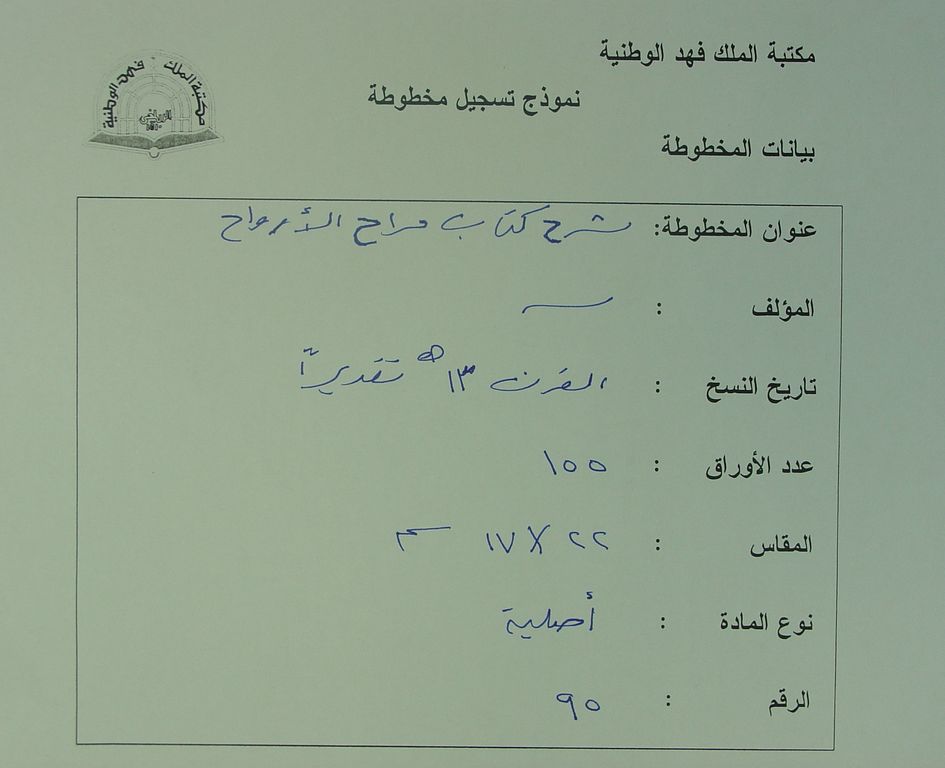 مكتبة الملك فهد الوطنية
مكتبة الملك فهد الوطنية
الرياض
نموذج تسجيل مخطوطة
بيانات المخطوطة
عنوان المخطوطة: شرح كتاب مراح الأرواح
المؤلف :
تاريخ النسخ : القرن ١٣ هـ تقديرًا
عدد الأوراق : ١٥٥
المقاس : ٢٢ X ١٧ سم
نوع المادة : أصلية
الرقم : ٩٥